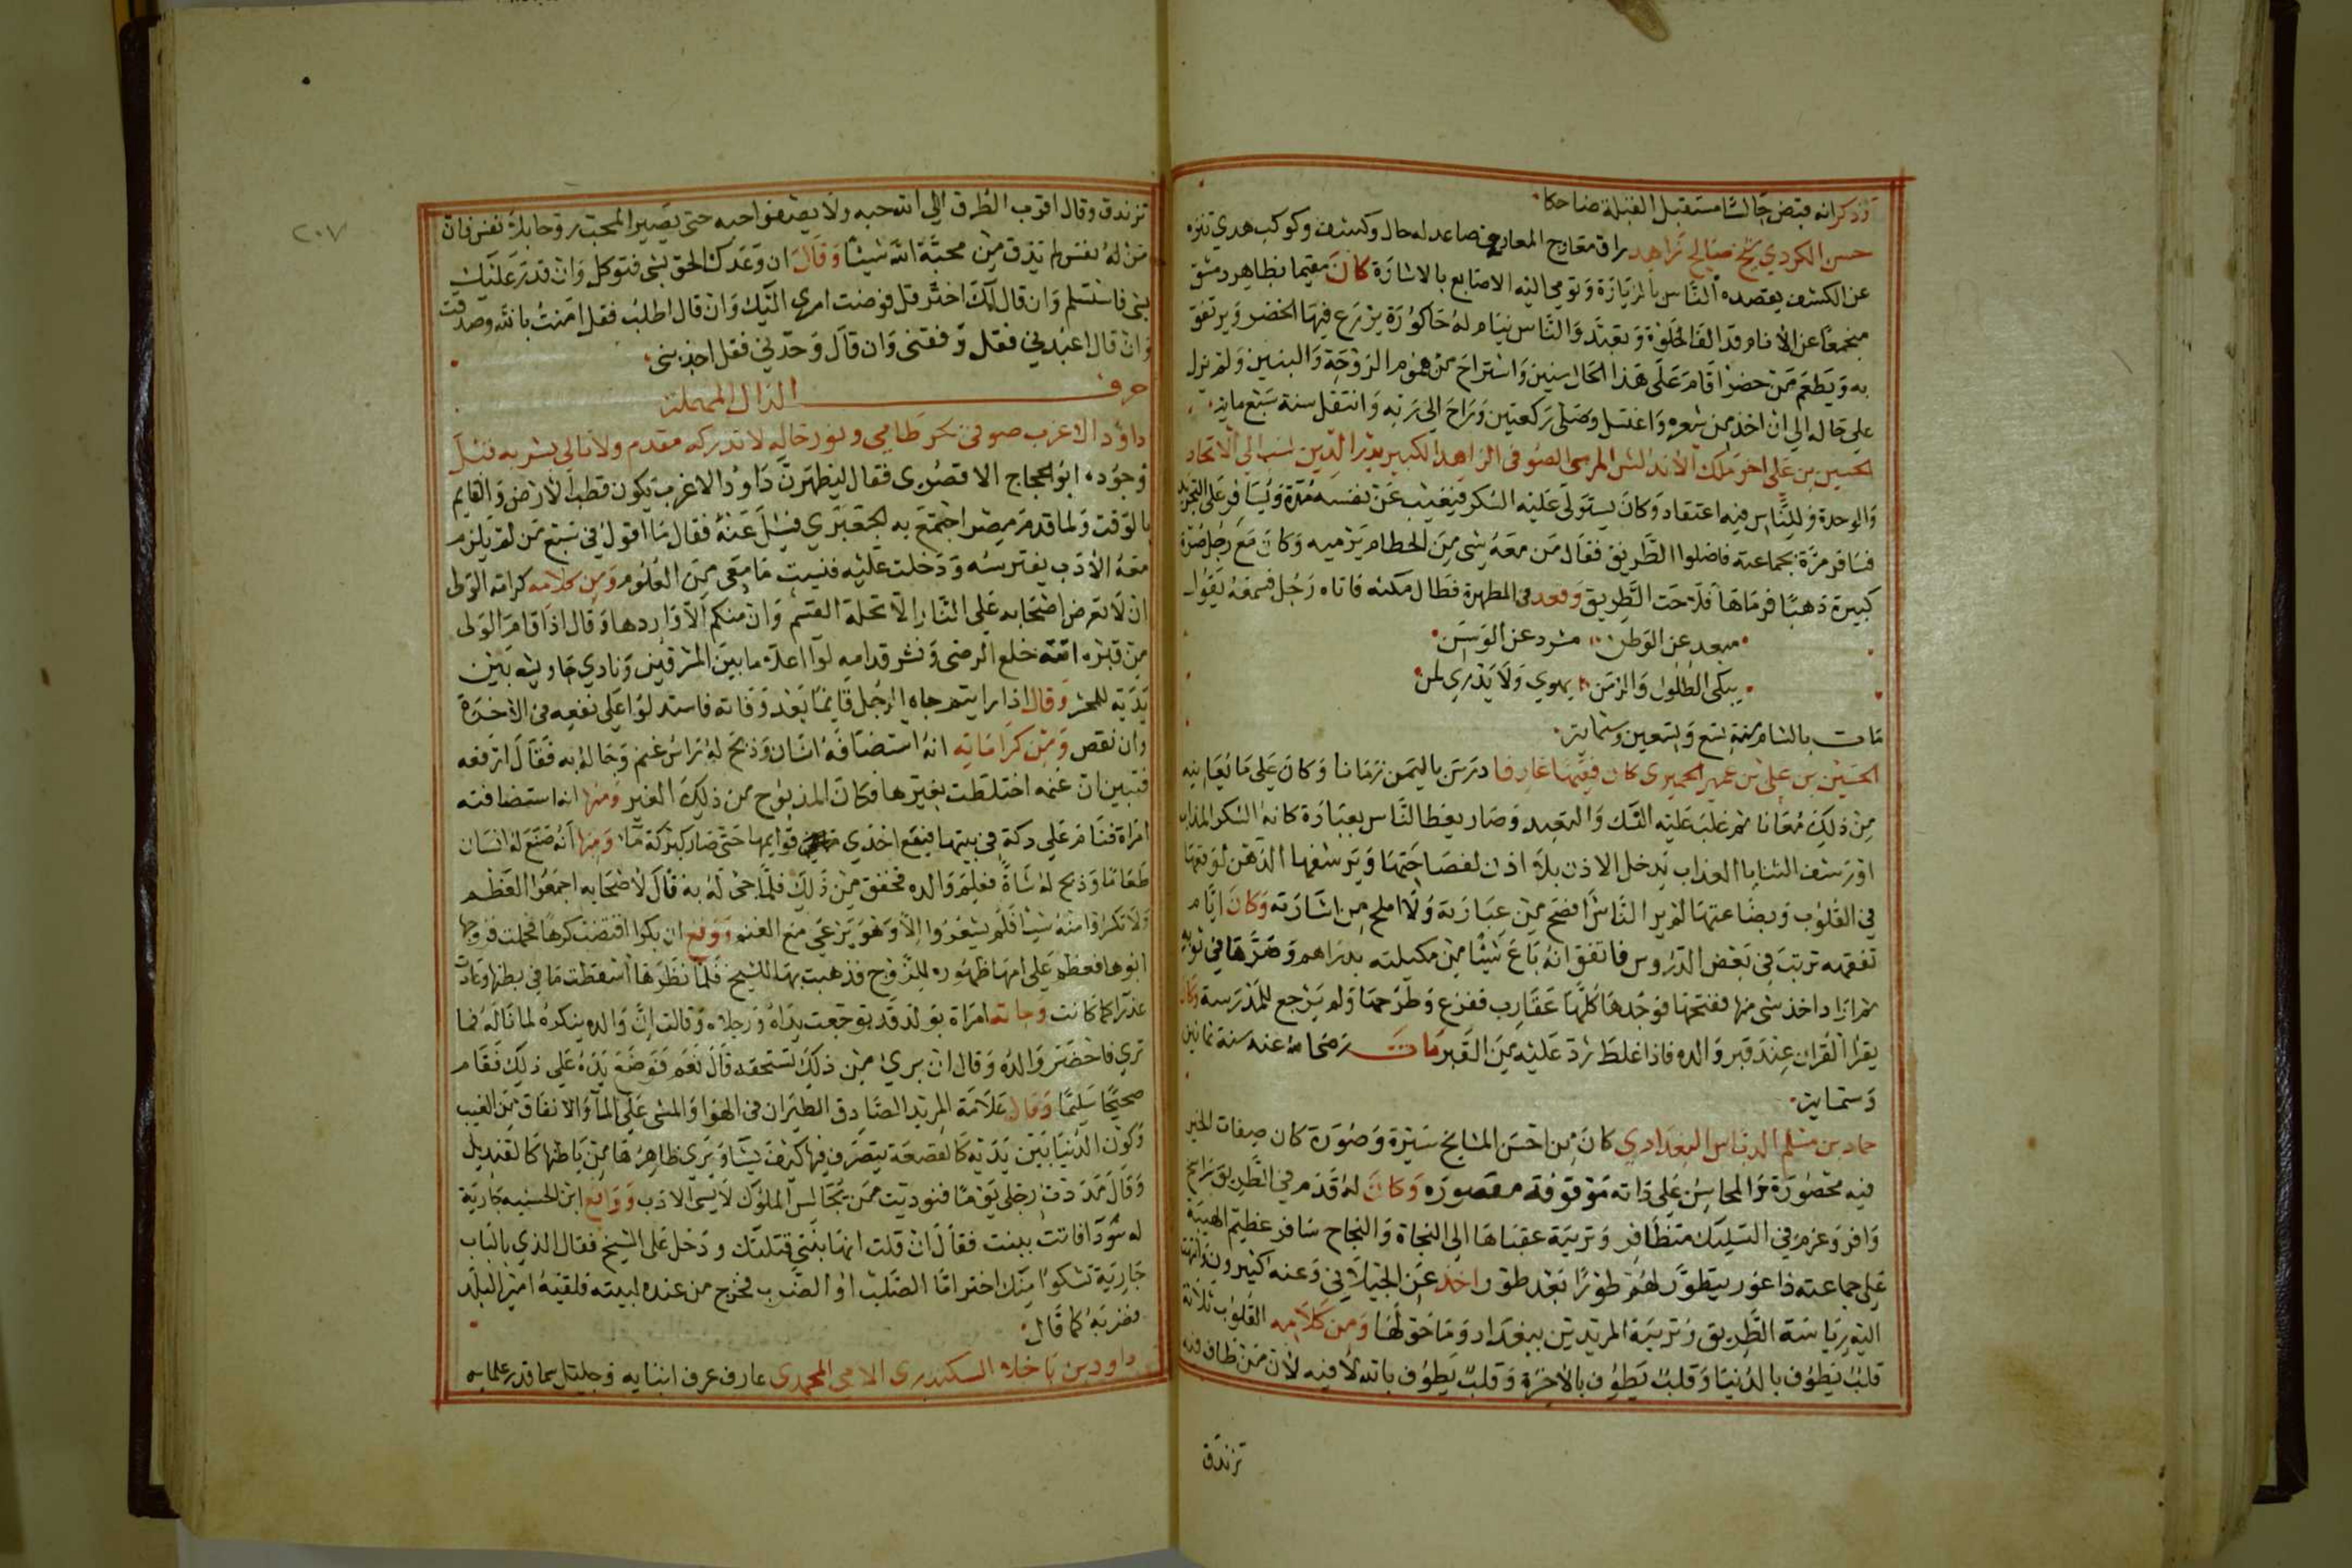 وذكر انه قبض جالسًا مستقبل القبلة ضاحكا
حسن الكردي شيخ صالح زاهد راق معارج المعارف صاعد له حال وكشف وكوكب هدي تنزه
عن الكشف يقصده الناس بالزيارة وتومي اليه الاصابع بالاشارة كان مقيما بظاهر دمشق
منجمعًا عن الانام قد الف الخلوة وتعبد والناس نيام له حاكورة يزرع فيها الخضر ويرتفق
به ويطعم من حضر اقام على هذا الحال سنين واستراح من هموم الزوجة والبنين ولم يزل
على حاله الي ان اخذ من شعره واغتسل وصلى ركعتين وراح الى ربه وانتقل سنة سبع ماية
الحسين بن على اخو ملك الاندلس المرسى الصوفى الزاهد الكبير بدر الدين نسب الي الاتحاد
والوحدة وللناس فيه اعتقاد وكان يستولى عليه السكر فيغيب عن نفسه مدة ويسافر على التجريد
فسافر مرة بجماعته فاضلوا الطريق فقال من معه شى من الحطام يرميه وكان مع رجل صرة
كبيرة ذهبًا فرماها فلاحت الطريق وقعد فى المطهرة فطال مكثه فاتاه رجل فسمعه يقول
مبعد عن الوطن مشرد عن الوسن
يبكى الطلول والزمن يهوي ولا يدري لمن
مات بالشام سنة تسع وتسعين وستماية
الحسين بن على بن عمير الحميرى كان فقيها عارفا درس باليمن زمانا وكان على ما يعانيه
من ذلك معانا ثم غلب عليه النسك والتعبد وصار يعظ الناس بعبارة كانه السكر المذاب
او رشف الثنايا العذاب يدخل الاذن بلا اذن لفصاحتها ويرشفها الذهن لوقعها
فى القلوب وبضاعتها لم ير الناس افصح من عبارته ولا املح من اشارته وكان ايام
تفقهه ترتب فى بعض الدروس فاتفق انه باع شيئًا من مكيلته بدراهم وصرها في ثوبه
ثم اراد اخذ شى منها ففتحها فوجدها كلها عقارب ففزع وطرحها ولم يرجع للمدرسة وكان
يقرا القران عند قبر والده فاذا غلط رد عليه من القبر مات رضى الله عنه سنة ثمانين
وستماية
حماد بن مسلم الدباس البغدادي كان من احسن المشايخ سيرة وصورة كان صفات الخير
فيه محصورة والمحاسن على ذاته موقوفة مقصوره وكان له قدم في الطريق راسخ
وافر وعزم فى التسليك متظافر وتربية عقباها الى النجاة والنجاح سافر عظيم الهيبة
على جماعته ذا غور يتطور لهم طورًا بعد طور اخذ عن الجيلاني وعنه كثيرون انتهت
اليه رياسة الطريق وتربية المريدين ببغداد وما حولها ومن كلامه القلوب ثلاثة
قلب يطوف بالدنيا وقلب يطوف بالاخرة وقلب يطوف بالله لا فيه لان من طاف فيه
تزندق
٢٠٧
تزندق وقال اقرب الطرق الي الله حبه ولا يصفو حبه حتى يصير المحب روحا بلا نفس فان
من له نفس لم يذق من محبة الله شيئًا وقال ان وعدك الحق بشى فتوكل وان قدر عليك
بشى فاستسلم وان قال لك اختر قل فوضت امرى اليك وان قال اطلب فقل امنت بالله وصدقت
وان قال اعبدني فقل وفقنى وان قال وحدني فقل اجذبنى
حرف الدال المهملة
داود الاعزب صوفى بحر طامي ونور حاله لا تدركه مقدم ولا تالى بشر به قبل
وجوده ابو الحجاج الاقصرى فقال ليظهرن داود الاعزب يكون قطب الارض والقايم
بالوقت ولما قدم مصر اجتمع به الجعبري فسئل عنه فقال ما اقول فى سبع من لم يلزم
معه الادب يفترسه ودخلت عليه فنسيت ما معى من العلوم ومن كلامه كرامة الولى
ان لا تعرض اصحابه على النار الا تحلة القسم وان منكم الا واردها وقال اذا قام الولى
من قبره خلع الرضى ونشر قدامه لوا اعلاه ما بين المشرقين ونادي جاويشه بين
يديه للحشر وقال اذا رايتم جاه الرجل قايمًا بعد وفاته فاستدلوا على نفعه فى الاخرة
وان نقص ومن كراماته انه استضافه انسان وذبح له راس غنم وجا له به فقال ارفعه
فتبين ان غنمه اختلطت بغيرها فكان المذبوح من ذلك الغير ومنها انه استضافته
امراة فنام على دكة فى بيتها فيقع اخذي قوايمها حتى صار كبركة ما ومنها انه صنع له انسان
طعاما وذبح له شاة فعلم والده فحنق من ذلك فلما جئ له به قال لاصحابه اجمعوا العظم
ولا تكسروا منه شيئا فلم يشعروا الا وهو يرعى مع الغنم ووقع ان بكرا افتضت كرها فحملت فزوجها
ابوها فعظم على امها ظهوره للزوج فذهبت بها للشيخ فلما نظرها اسقطت ما فى بطنها وعادت
عذرا كما كانت وجاته امراة بولد قد توجعت يداه ورجلاه وقالت ان والده ينكره لما ناله مما
تري فاحضر والده وقال ان بري من ذلك تستحقه قال نعم فوضع يده على ذلك فقام
صحيحًا سليمًا وقال علامة المريد الصادق الطيران فى الهوا والمشى على الما والانفاق من الغيب
وكون الدنيا بين يديه كالقصعة يتصرف فيها كيف يشا ويرى ظاهرها من باطنها كالقنديل
وقال مددت رجلى يومًا فنوديت من يجالس الملوك لا يسئ الادب وواقع ابن الحسنيه جارية
له سودا فاتت ببنت فقال ان قلت انها بنتى قتلتك ودخل على الشيخ فقال الذي بالباب
جارية تشكوا منك اختر اما الصلب او الضرب فخرج من عنده لبيته فلقيه امير البلد
فضربه كما قال
داود بن باخلا السكندرى الامى المحمدى عارف عرف ابنايه وجليل سما قدر علمايه